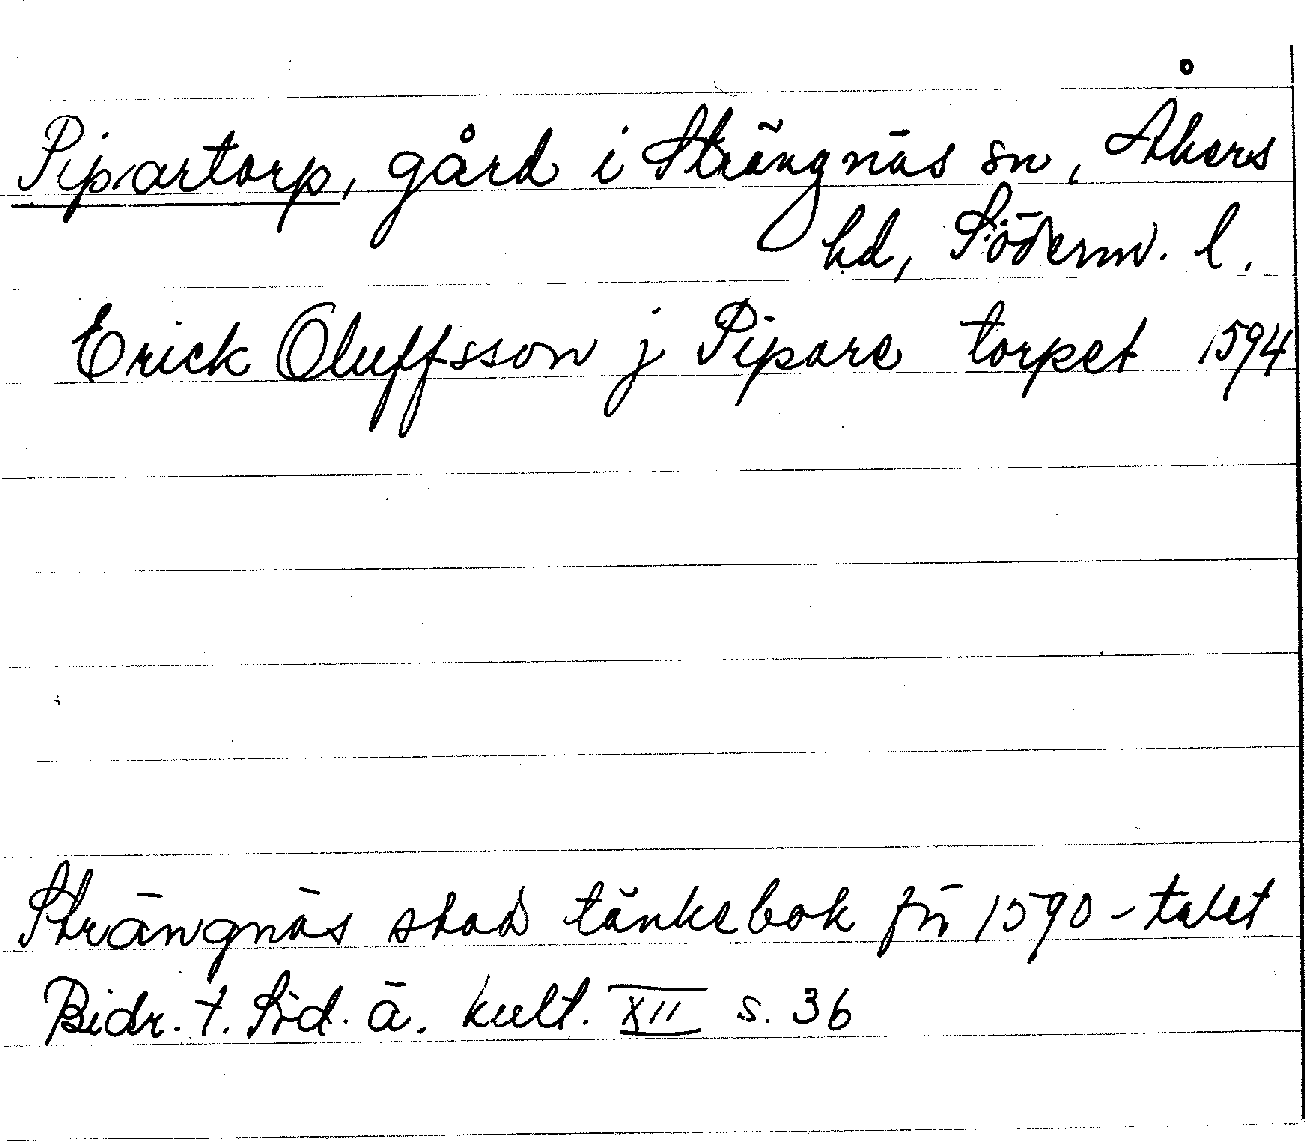 Pipartorp, gård i Strängnäs sn, Åkers
hd, Söderm. l.
Erick Oluffsson j Pipare torpet 1594
Strängnäs stad tänkebok för 1590-talet
Bidr. t. Söd. ä. kult. XII s. 36